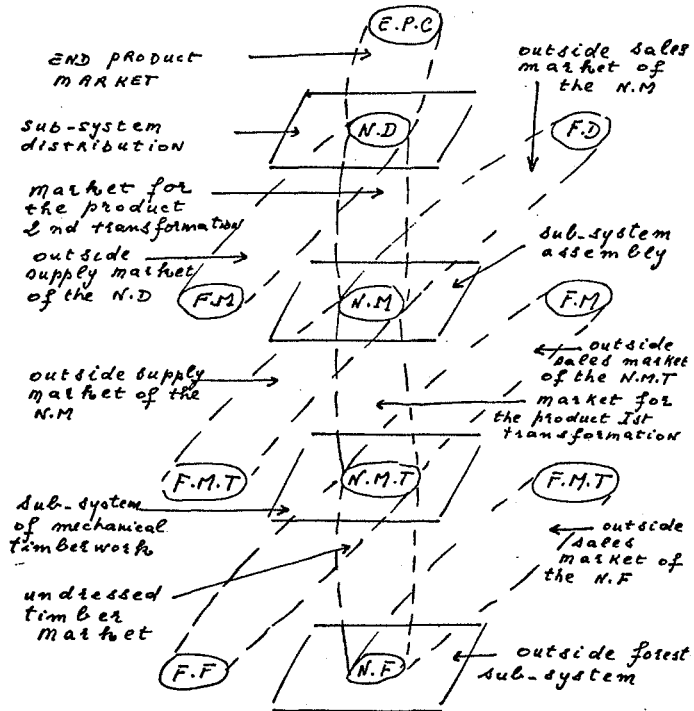 E.P.C
END PRODUCT
MARKET
outside sales
market of
the N.M
sub-system
distribution
N.D
F.D
market for
the product
2nd transformation
sub-system
assembly
outside
supply market
of the N.D
F.M
N.M
F.M
outside
sales market
of the N.M.T
outside supply
market of the
N.M
market for
the product Ist
transformation
F.M.T
N.M.T
F.M.T
sub-system
of mechanical
timberwork
outside
sales
market of
the N.F
undressed
timber
market
F.F
N.F
outside forest
sub-system